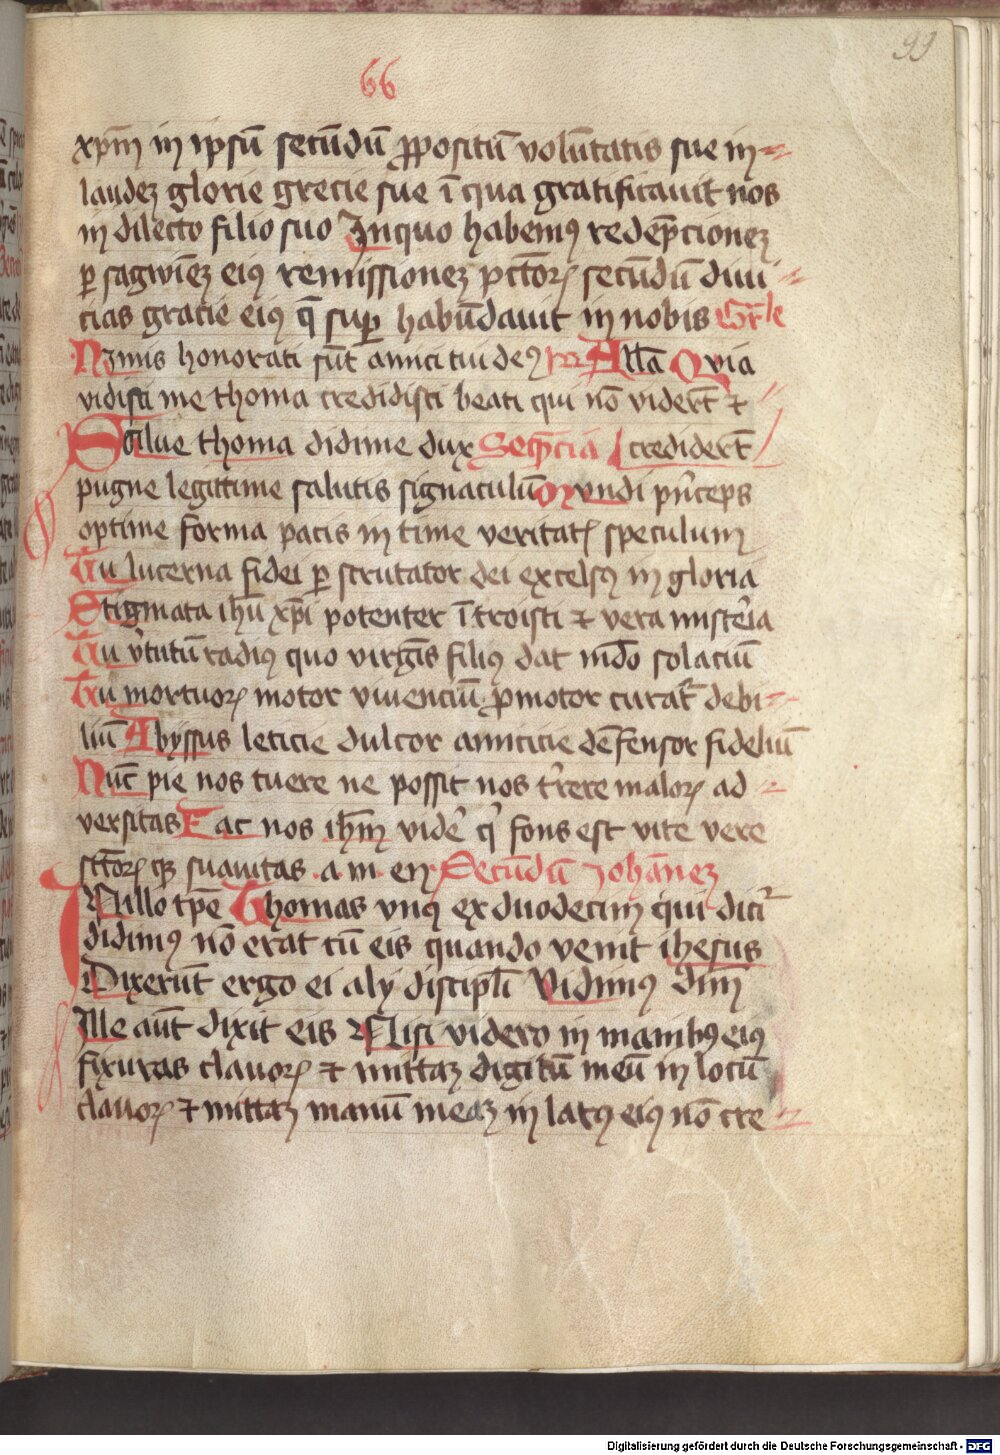 99
66
xpm̄ in ipsū secūdū ꝓpositū volūtatis sue in
laudeꝫ glorie grecie sue ī qua gratificauit nos
in dilecto filio suo Inquo habemꝰ redēpcioneꝫ
ꝑ sagwīeꝫ eiꝰ remissioneꝫ pctōꝝ secūdū diui
cias gracie eiꝰ q̄ suꝑ habūdauit in nobis Gr̄le
Nimis honorati sūt amici tui deꝰ Alla Quia
vidisti me thoma credidisti beati qui nō viderūt et
Salue thoma didime dux Seqn̄cia crediderūt
pugne legittime salutis signaculū Mundi pn̄ceps
optime forma pacis in time veritatꝭ speculum
Tu lucerna fidei ꝑ scrutator dei excelsꝰ in gloria
Stigmata ihū xpī potenter ītroisti et vera misteria
Tu vt̓utū radiꝰ quo virgīs filiꝰ dat mūdo solaciū
Tu mortuoꝝ motor viuenciū ꝓmotor curatꝰ debi
liū Abyssus leticie dulcor amicicie dēfensor fideliū
Nūc pie nos tuere ne possit nos tr̓rere maloꝝ ad
versitas Fac nos ihm̄ videˀ qˀ fons est vite vere
sctōꝝ qꝫ suauitas . a m en Secūdū Johāneꝫ
In illo tp̄e Thomas vnꝰ ex duodecim qui dicir̓
didimꝰ nō erat cū eis quando venit ihesus
Dixerūt ergo ei alij discipl̄i Vidimꝰ dn̄m
Ille aūt dixit eis Nisi videro in manibꝰ eiꝰ
fixuras clauoꝝ et mittaꝫ digitū meū in locū
clauoꝝ et mittaꝫ manū meaꝫ in latꝰ eiꝰ nō cre
Digitalisierung gefördert durch die Deutsche Forschungsgemeinschaft - DFG